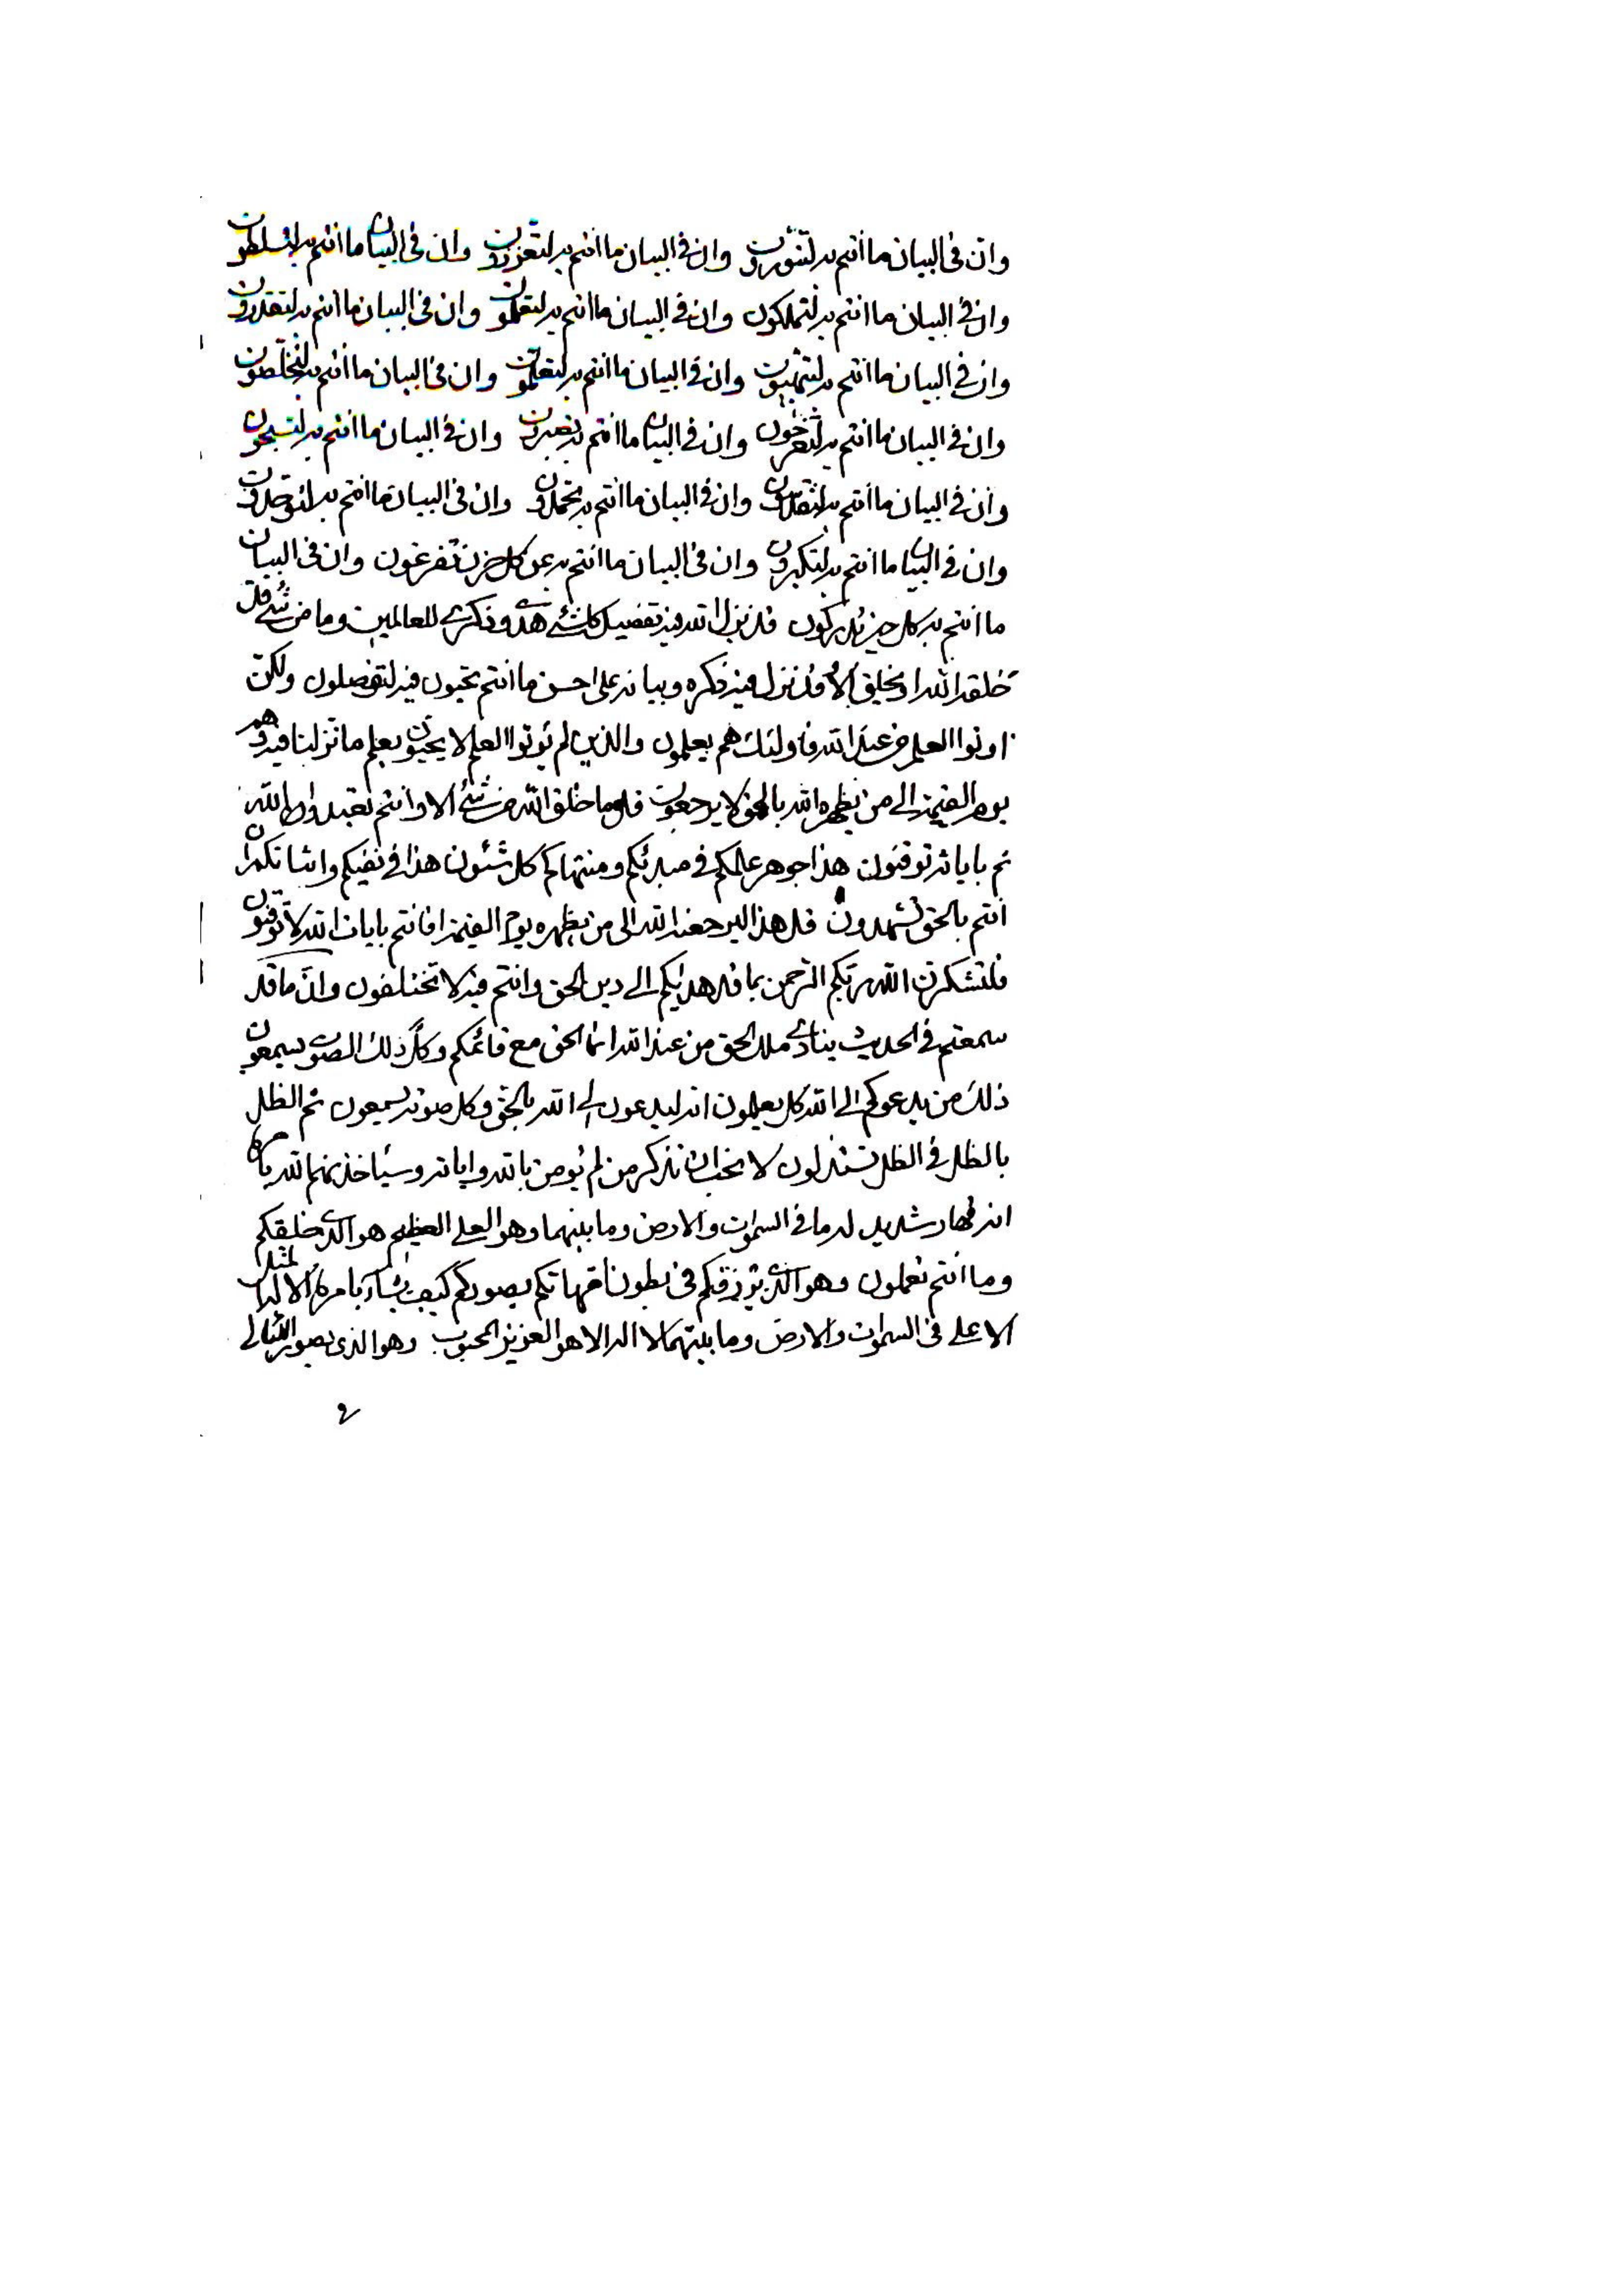 وان فى البيان ما انتم به لتنورون وان فى البيان ما انتم به لتعززون وان فى البيان ما انتم به لتسلطون
وان فى البيان ما انتم به لتملكون وان فى البيان ما انتم به لتعلمون وان فى البيان ما انتم به لتقدرون
وان فى البيان ما انتم به وان فى البيان ما انتم به وان فى البيان ما انتم به لتخلصون
وان فى البيان ما انتم به وان فى البيان ما انتم به وان فى البيان ما انتم به لتسبحون
وان فى البيان ما انتم به لتقدسون وان فى البيان ما انتم به وان فى البيان ما انتم به لتوحدون
وان فى البيان ما انتم به لتكبرون وان فى البيان ما انتم به عن كل حزن تفرغون وان فى البيان
ما انتم به كل خير تدركون قد نزل الله فيه تفصيل كلشئ هدى وذكرى للعالمين وما من شئ قد
خلقه الله او يخلق الا وقد نزل فيه ذكره وبيانه على احسن ما انتم تحبون فيه لتفصلون ولكن
اوتوا العلم من عند الله فاولئك هم يعلمون والذين لم يؤتوا العلم لا يحيطون بعلم ما نزلنا فيه وهم
يوم القيمة الى من يظهره الله بالحق لا يرجعون قل وما خلق الله من شئ الا وانتم لتعبدوا الله
ثم باياته توقنون هذا جوهر علمكم فى مبدئكم ومنتهاكم كل شئون هذا فى نفيكم واثباتكم ان
انتم بالحق لتشهدون قل هذا اليه يرجعنه الله الى من يظهره يوم القيمة افانتم بايات الله لا توقنون
فلتشكرن الله ربكم الرحمن بما قد هديكم الى دين الحق وانتم فيه لا تختلفون وان ما قد
سمعتم فى الحديث ينادى ملك الحق من عند الله انما الحق مع قائمكم وكل ذلك الصوت يسمعون
ذلك من يدعوكم الى الله كل يعلمون انه ليدعون الى الله بالحق وكل صوته يسمعون ثم الظل
بالظل فى الظل تستدلون لا نحب ان نذكر من لم يؤمن بالله واياته وسيأخذنهم الله بامره
انه قهار شديد له ما فى السموات والارض وما بينهما وهو العلى العظيم هو الذى خلقكم
وما انتم تعملون وهو الذى يرزقكم فى بطون امهاتكم يصوركم كيف يشاء بامره له الامثال
الاعلى فى السموات والارض وما بينهما لا اله الا هو العزيز المحبوب وهو الذى يصور